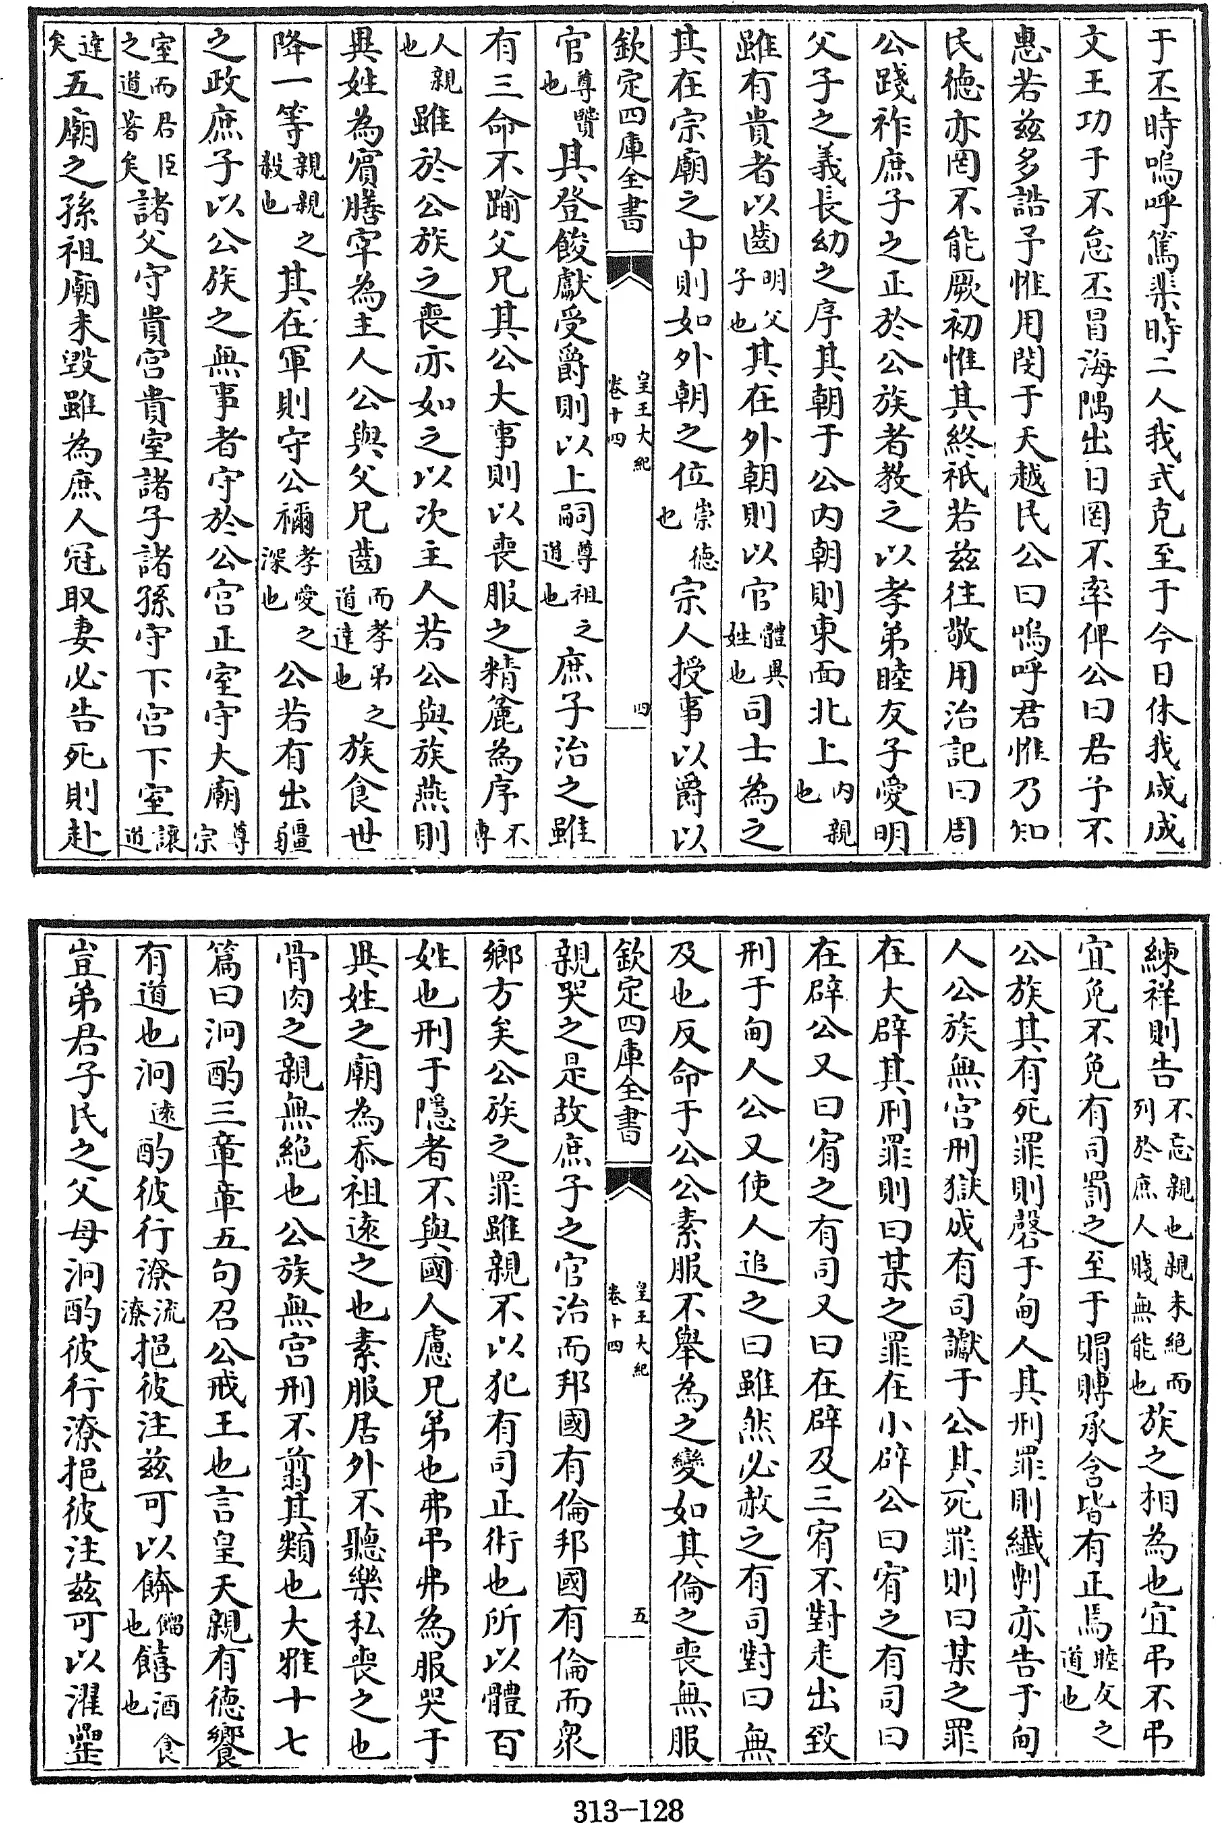 于丕時嗚呼篤棐時二人我式克至于今日休我咸成
文王功于不怠丕冒海隅出日罔不率俾公曰君予不
惠若兹多誥予惟用閔于天越民公曰嗚呼君惟乃知
民德亦罔不能厥初惟其終祇若兹往敬用治記曰周
公踐祚庶子之正於公族者教之以孝弟睦友子愛明
父子之義長幼之序其朝于公内朝則東面北上内親也
雖有貴者以齒明父子也其在外朝則以官體異姓也司士為之
其在宗廟之中則如外朝之位崇德也宗人授事以爵以
欽定四庫全書 皇王大紀 卷十四 四
官尊賢也其登餕獻受爵則以上嗣尊祖之道也庶子治之雖
有三命不踰父兄其公大事則以喪服之精麄為序不奪
人親也雖於公族之喪亦如之以次主人若公與族燕則
異姓為賔膳宰為主人公與父兄齒而孝弟之道達也族食世
降一等親親之殺也其在軍則守公禰孝愛之深也公若有出疆
之政庶子以公族之無事者守於公宫正室守大廟尊宗
室而君臣之道著矣諸父守貴宫貴室諸子諸孫守下宫下室讓道
達矣五廟之孫祖廟未毀雖為庶人冠取妻必告死則赴
練祥則告不忘親也親未絶而列於庶人賤無能也族之相為也宜弔不弔
宜免不免有司罰之至于賵賻承含皆有正焉睦友之道也
公族其有死罪則磬于甸人其刑罪則纎剸亦告于甸
人公族無宫刑獄成有司讞于公其死罪則曰某之罪
在大辟其刑罪則曰某之罪在小辟公曰宥之有司曰
在辟公又曰宥之有司又曰在辟及三宥不對走出致
刑于甸人公又使人追之曰雖然必赦之有司對曰無
及也反命于公公素服不舉為之變如其倫之喪無服
欽定四庫全書 皇王大紀 卷十四 五
親哭之是故庶子之官治而邦國有倫邦國有倫而衆
鄉方矣公族之罪雖親不以犯有司正術也所以體百
姓也刑于隱者不與國人慮兄弟也弗弔弗為服哭于
異姓之廟為忝祖逺之也素服居外不聽樂私喪之也
骨肉之親無絶也公族無宫刑不翦其類也大雅十七
篇曰泂酌三章章五句召公戒王也言皇天親有德饗
有道也泂逺酌彼行潦流潦挹彼注兹可以餴餾也饎酒食也
豈弟君子民之父母泂酌彼行潦挹彼注兹可以濯罍
313-128